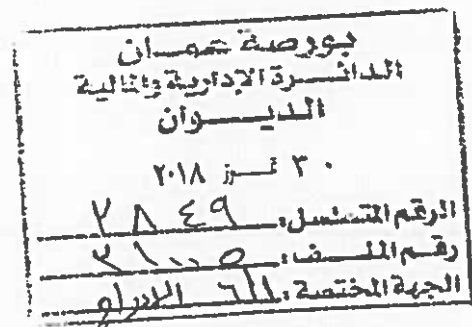 بورصة عمان
الدائرة الإدارية والمالية
الديوان
٣٠ تموز ٢٠١٨
الرقم المتسلسل: ٢٨٤٩
رقم الملف:
الجهة المختصة: